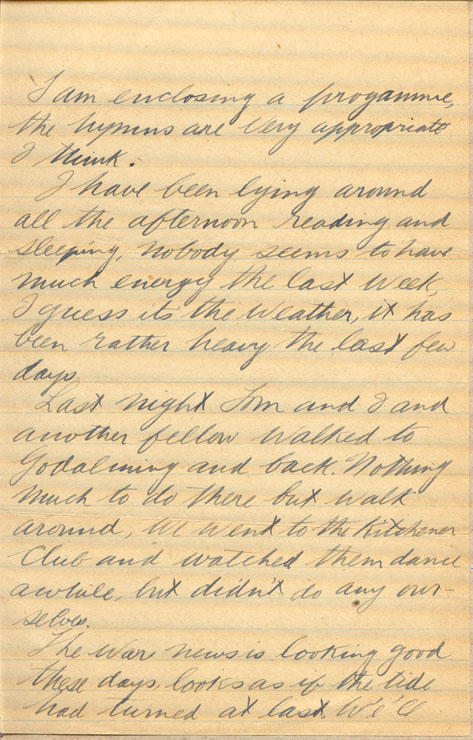 I am enclosing a progamme,
the hymns are very appropriate
I think.
I have been lying around
all the afternoon reading and
sleeping, nobody seems to have
much energy the last week,
I guess its the weather, it has
been rather heavy the last few
days.
Last night Tom and I and
another fellow walked to
Godalming and back. Nothing
much to do there but walk
around, we went to the Kitchener
Club and watched them dance
awhile, but didn't do any our-
selves.
The war news is looking good
these days, looks as if the tide
had turned at last, We'll